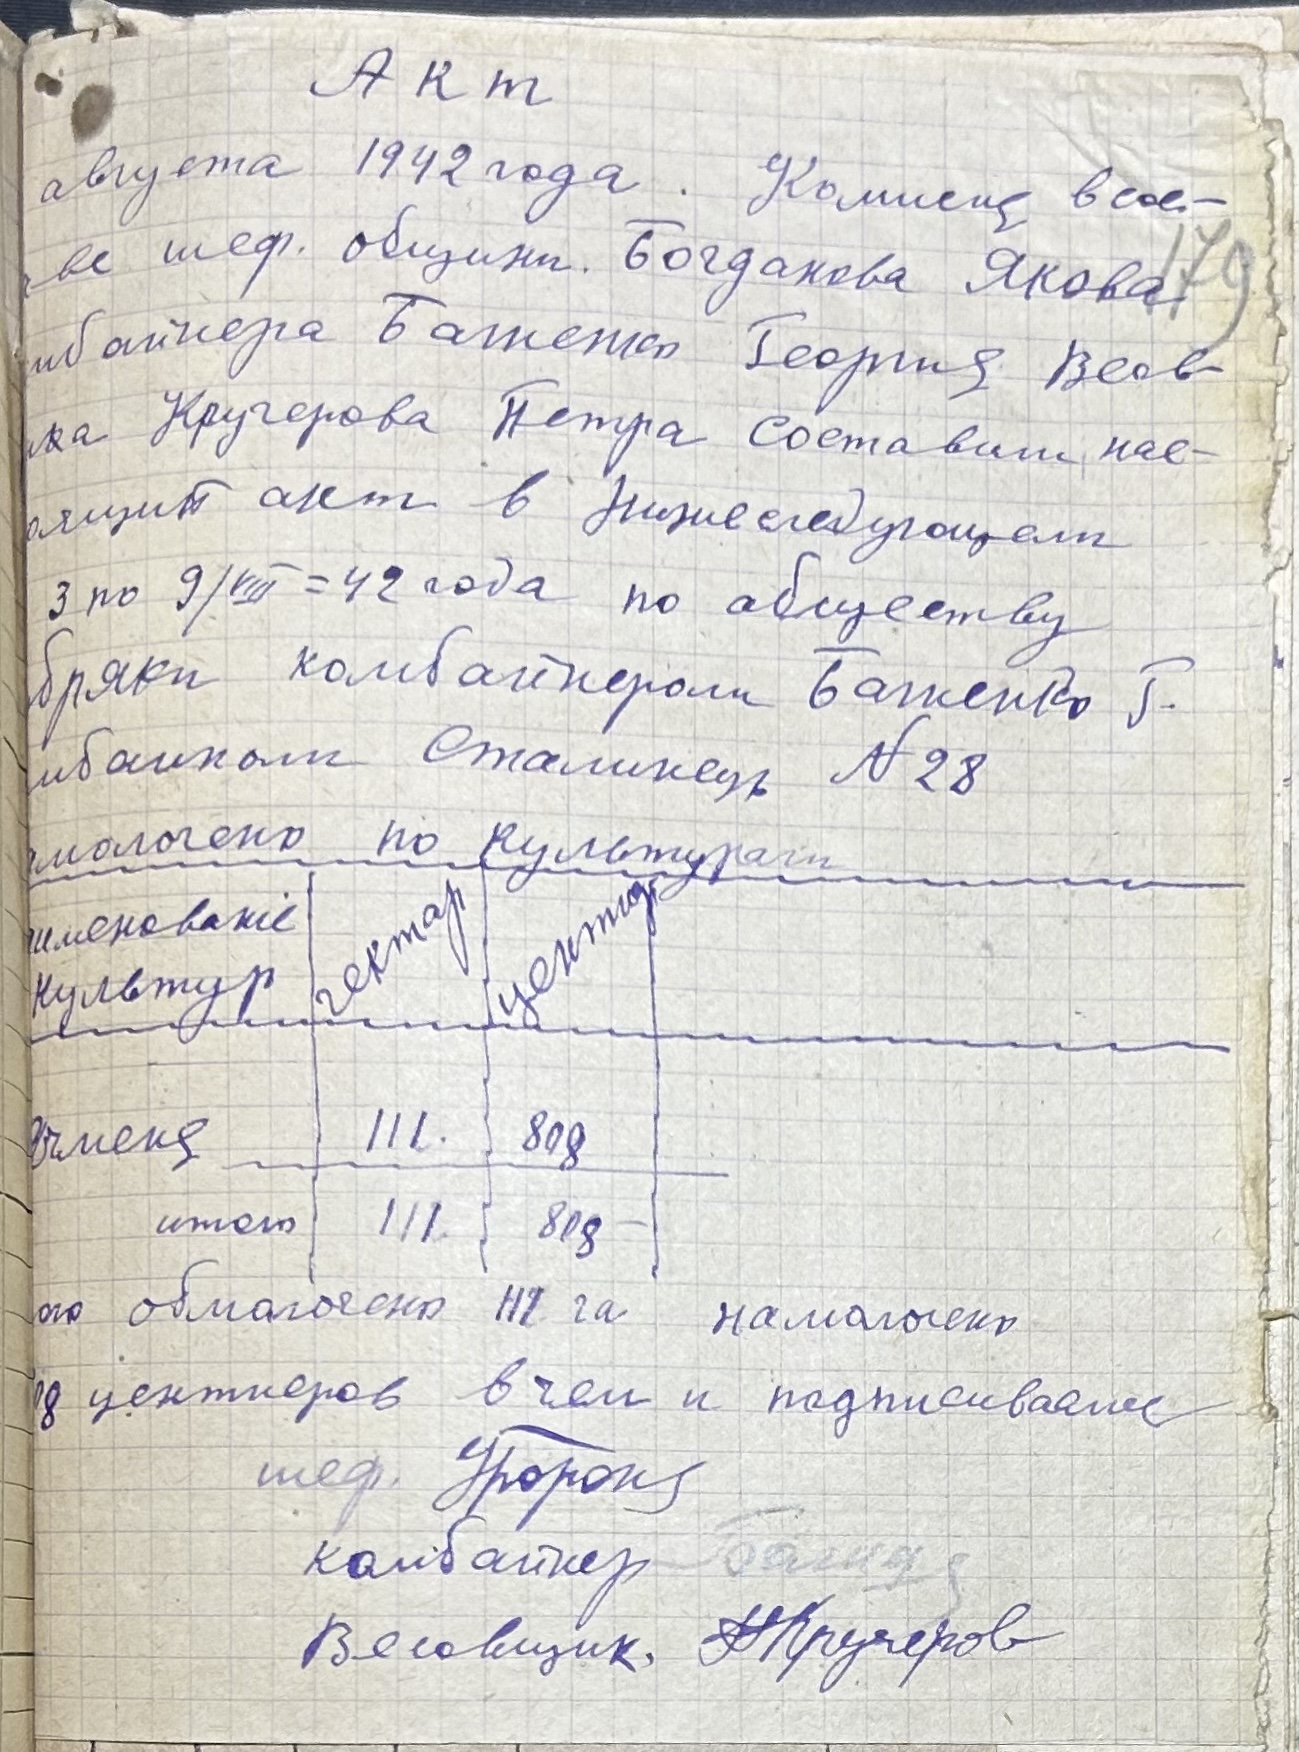 Акт
августа 1942 года. Комисия в сос-
ве шеф. общины. Богданова Якова
179
мбайнера Баженко Георгия Весов-
ка Кручерова Петра составили нас-
оящий акт в нижеследующем
3 по 9/VIII=42 года по обществу
бряки комбайнером Баженко Г.
мбайном Сталинець N 28
молочено по культурам
именование культур
гектар
центнер
Ячменя 111. 808
итого 111. 808
ого обмолочено 111 га намолочено
08 центнеров в чем и подписиваемся
шеф.
комбайнер
Весовщик. Кручеров